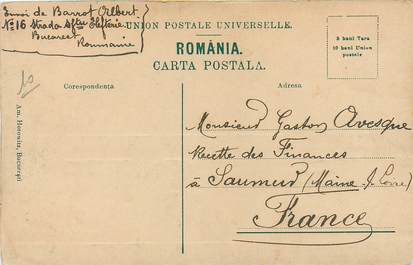 Envoi de Barrot Albert
No 16 Strada Sftu Elefterie
Bucarest
Roumanie
UNION POSTALE UNIVERSELLE.
ROMÂNIA.
CARTA POSTALA.
5 bani Tara
10 bani Union
postale
Corespondenta
Adresa
10
Am. Horowitz, Bucureşti
Monsieur Gaston Avesque
Recette des Finances
à Saumur (Maine & Loire)
France